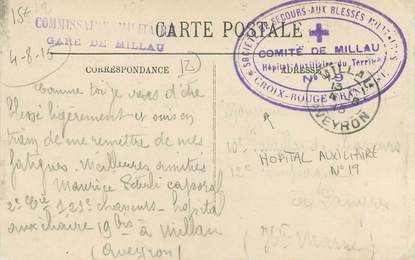 15€
COMMISSAIRE MILITAIRE
GARE DE MILLAU
4-8-15
CARTE POSTALE
SOCIÉTÉ DE SECOURS AUX BLESSÉS MILITAIRES
COMITÉ DE MILLAU
Hôpital Auxiliaire du Territ
N° 19
CROIX-ROUGE FRANÇAISE
CORRESPONDANCE
12
ADRESSE
MILLAU
AVEYRON
Comme toi je viens d'être
blessé légèrement et suis en
train de me remettre de mes
fatigues. Meilleures amitiés
Maurice caporal
2e Cie 121e chasseurs - hopital
auxiliaire 19 bis à Millau
(Aveyron)
HOPITAL AUXILIAIRE
N°19